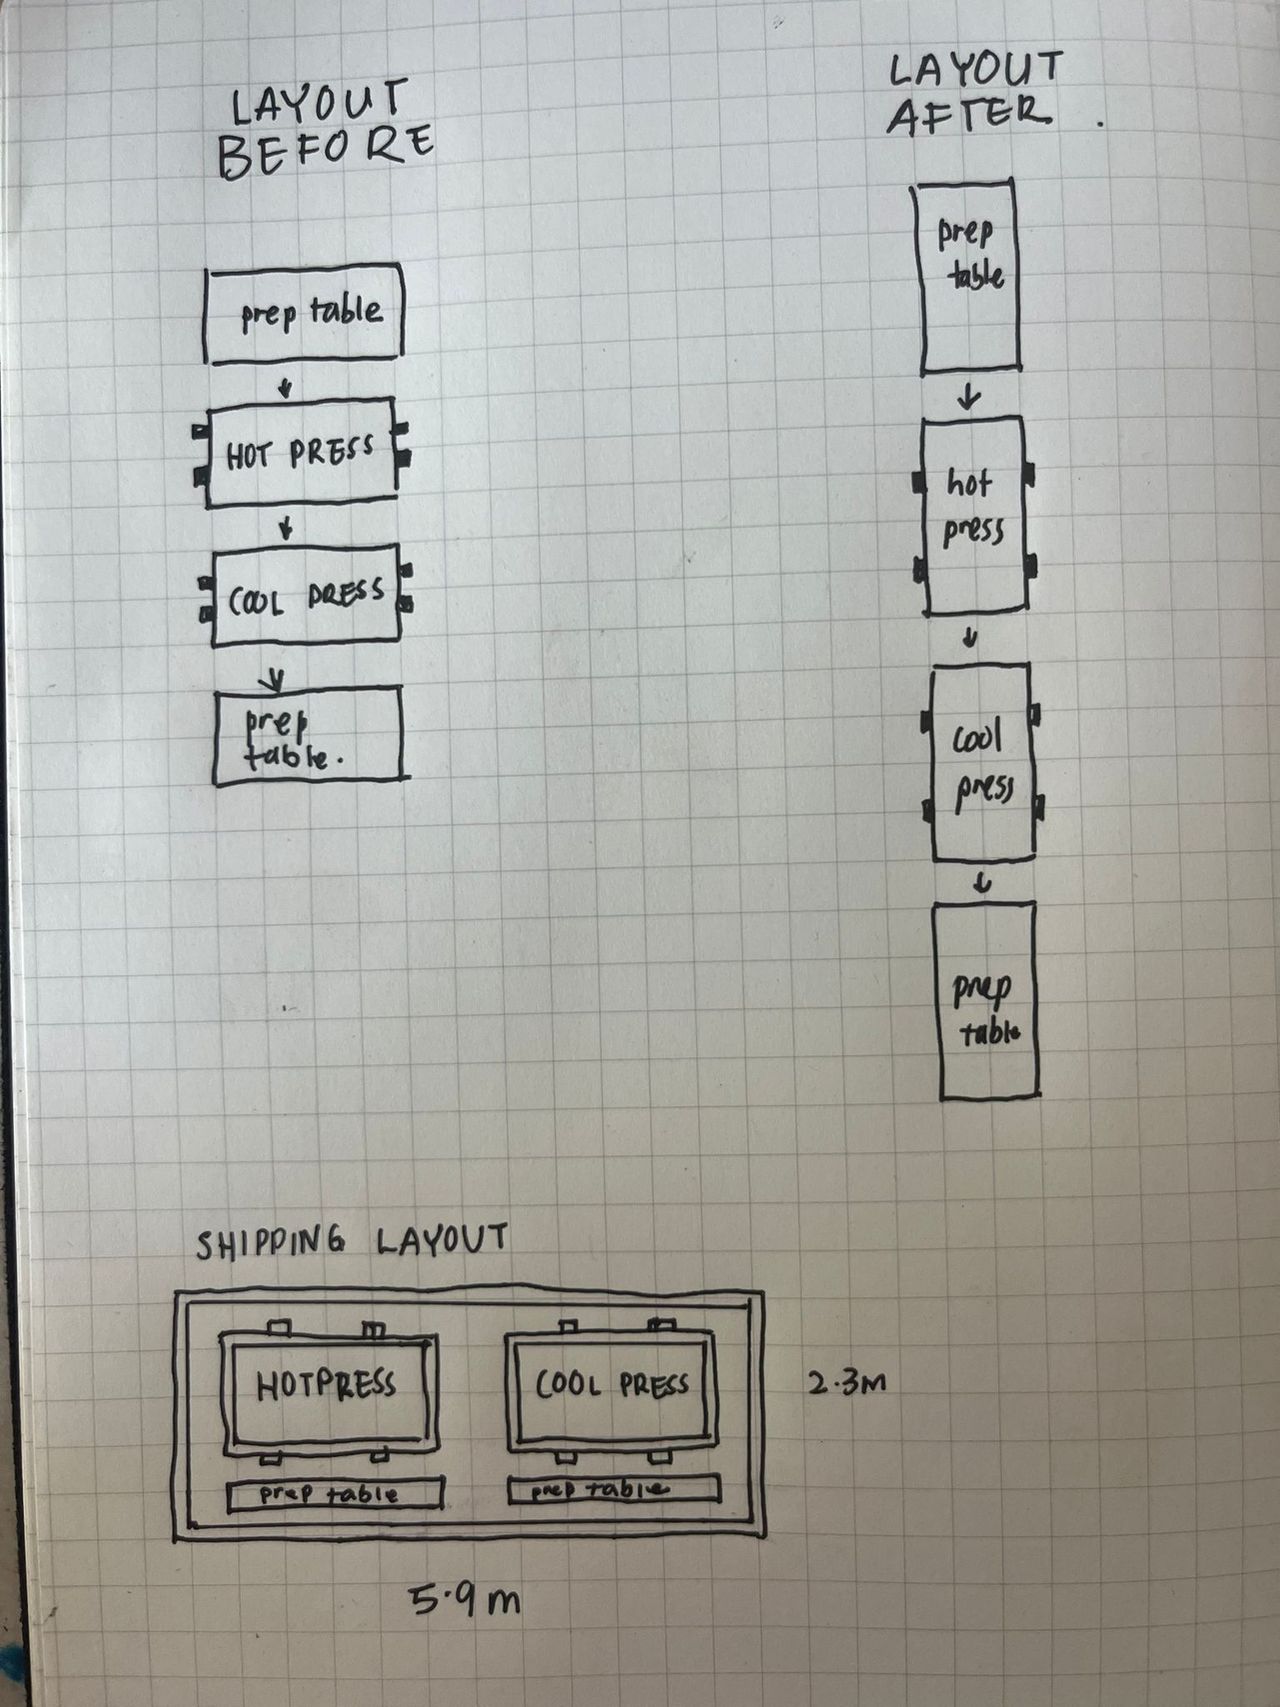 LAYOUT
BEFORE
prep table
HOT PRESS
COOL PRESS
prep
table.
LAYOUT
AFTER.
prep
table
hot
press
cool
press
prep
table
SHIPPING LAYOUT
HOTPRESS
COOL PRESS
prep table
prep table
2.3m
5.9m